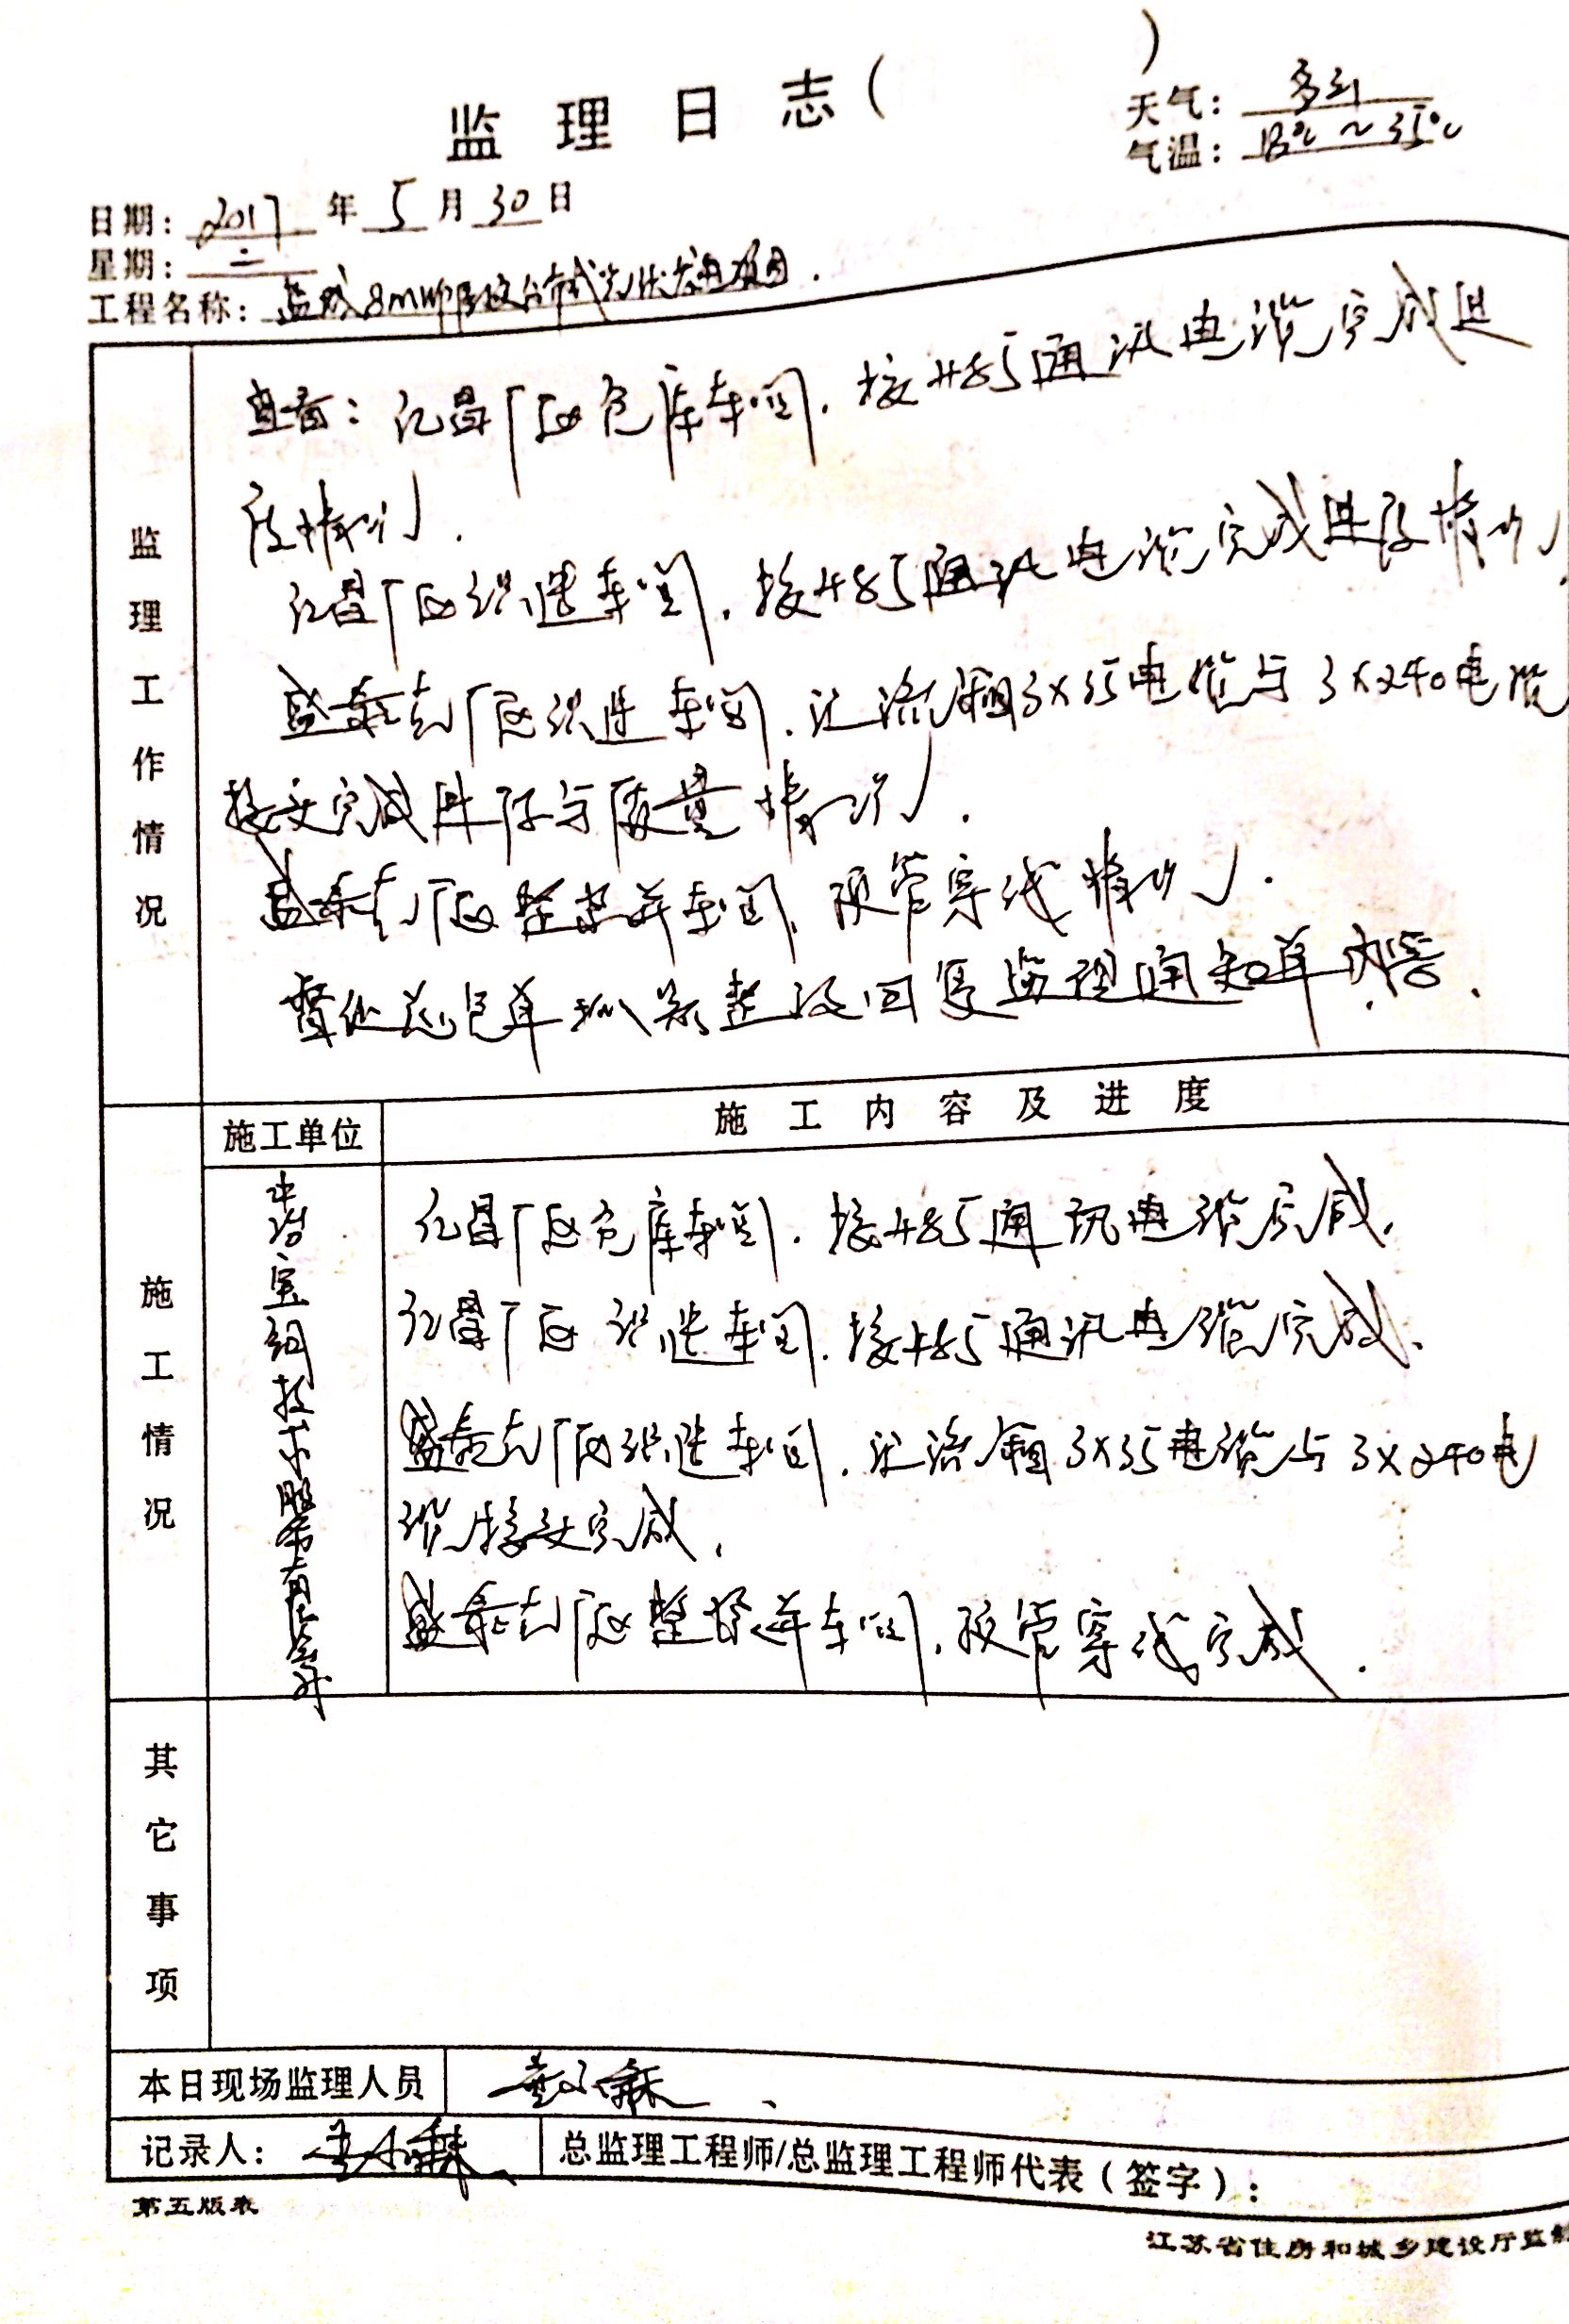 监理日志（ ）
天气：多云
气温：18℃～35℃
日期：2017年5月30日
星期：二
工程名称：盐城8MW 光伏发电项目.
监理工作情况
查看：亿昌厂区仓库车间.接485通讯电缆完成进
度情况.
亿昌厂区织造车间.接485通讯电缆完成进度情况.
盛泰克厂区织造车间.汇流箱3×35电缆与3×240电缆
接头完成进度与质量情况.
盛泰克厂区整浆并车间.预管穿线情况.
督促总包单位 整改回复监理通知单内容.
施工情况
施工单位
施工内容及进度
中冶宝钢技术服务有限公司
亿昌厂区仓库车间.接485通讯电缆完成.
亿昌厂区织造车间.接485通讯电缆完成.
盛泰克厂区织造车间.汇流箱3×35电缆与3×240电
缆接头完成.
盛泰克厂区整浆并车间.预管穿线完成.
其它事项
本日现场监理人员
记录人：
总监理工程师/总监理工程师代表（签字）：
第五版表
江苏省住房和城乡建设厅监制